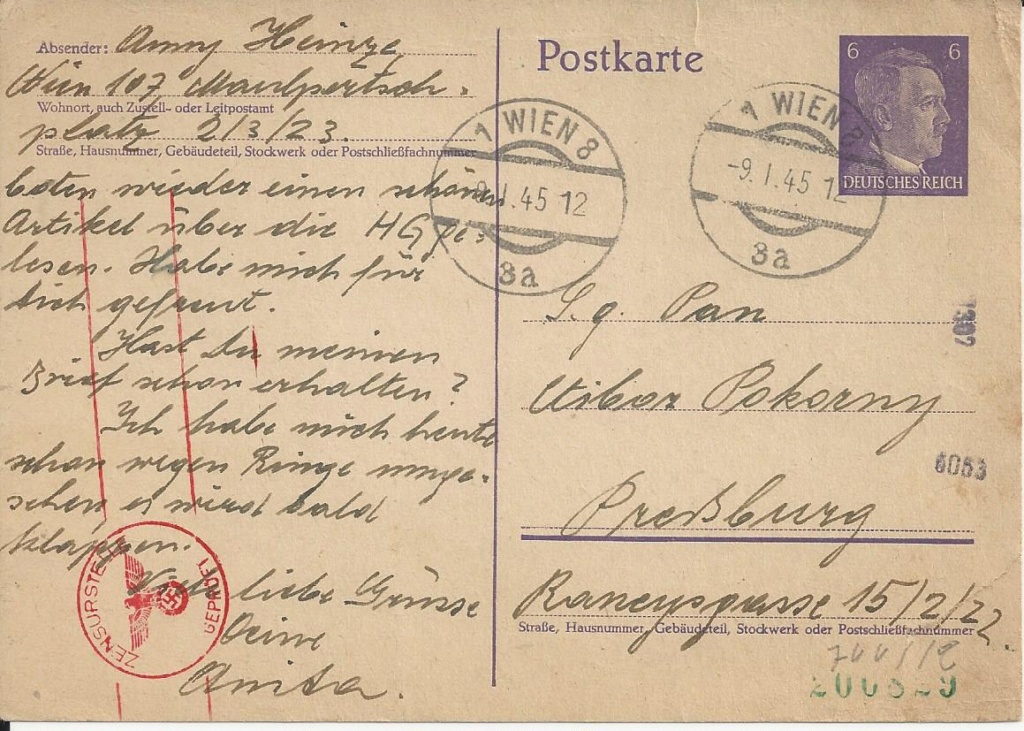 Absender: Anny Heinze
Wien 107, Maulpertsch-
Wohnort, auch Zustell- oder Leitpostamt
platz 2/3/23.
Straße, Hausnummer, Gebäudeteil, Stockwerk oder Postschließfachnummer
boten wieder einen schönen
Artikel über die HG ge-
lesen. Habe mich für
dich gefreut.
Hast Du meinen
Brief schon erhalten?
Ich habe mich heute
schon wegen Ringe umge-
sehen es wird bald
klappen.
Viele liebe Grüsse
Deine
Anita.
ZENSURSTELLE
GEPRÜFT
Postkarte
6 6
DEUTSCHES REICH
1 WIEN 8
-9.I.45 12
8a
1 WIEN 8
-9.I.45 12
8a
S.g. Pan
Tibor Pokorny
Preßburg
15/2/22
Straße, Hausnummer, Gebäudeteil, Stockwerk oder Postschließfachnummer
6053